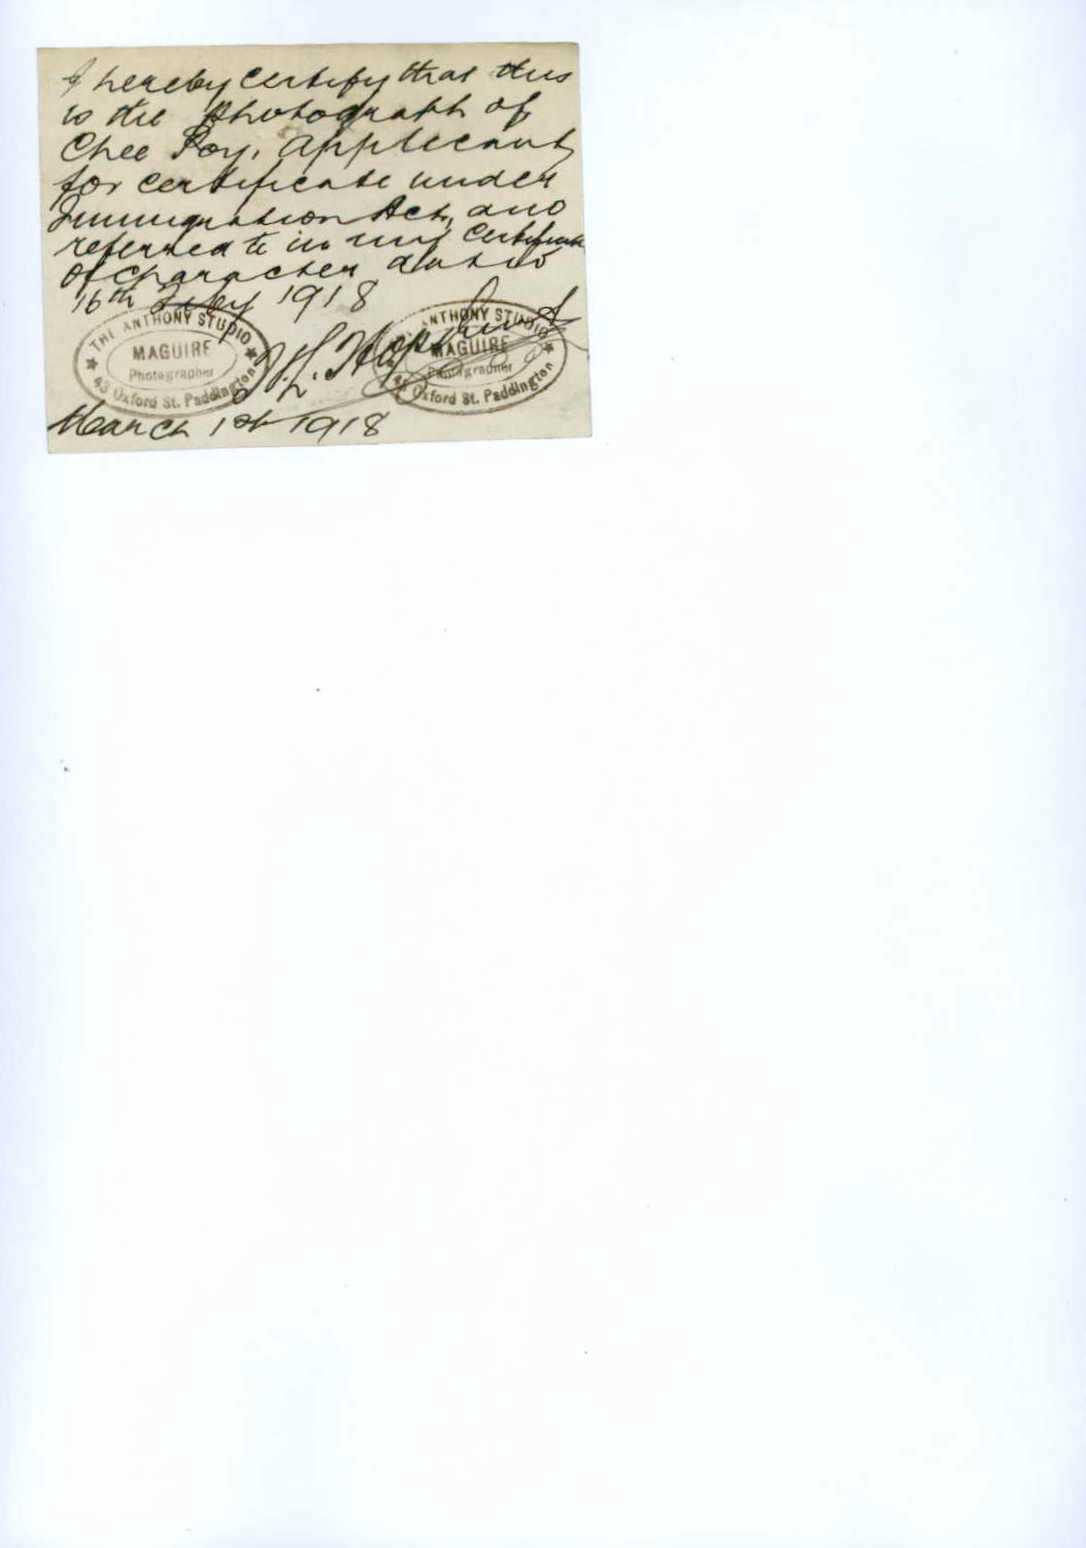 I hereby certify that this
is the Photograph of
Chee Poy, Applicant
for certificate under
Immigration Act, and
referred to in my certificate
of character dated
16th Feby 1918
THE ANTHONY STUDIO
MAGUIRE
Photographer
43 Oxford St. Paddington
J. L.
ANTHONY STUDIO
MAGUIRE
Photographer
43 Oxford St. Paddington
March 1st 1918